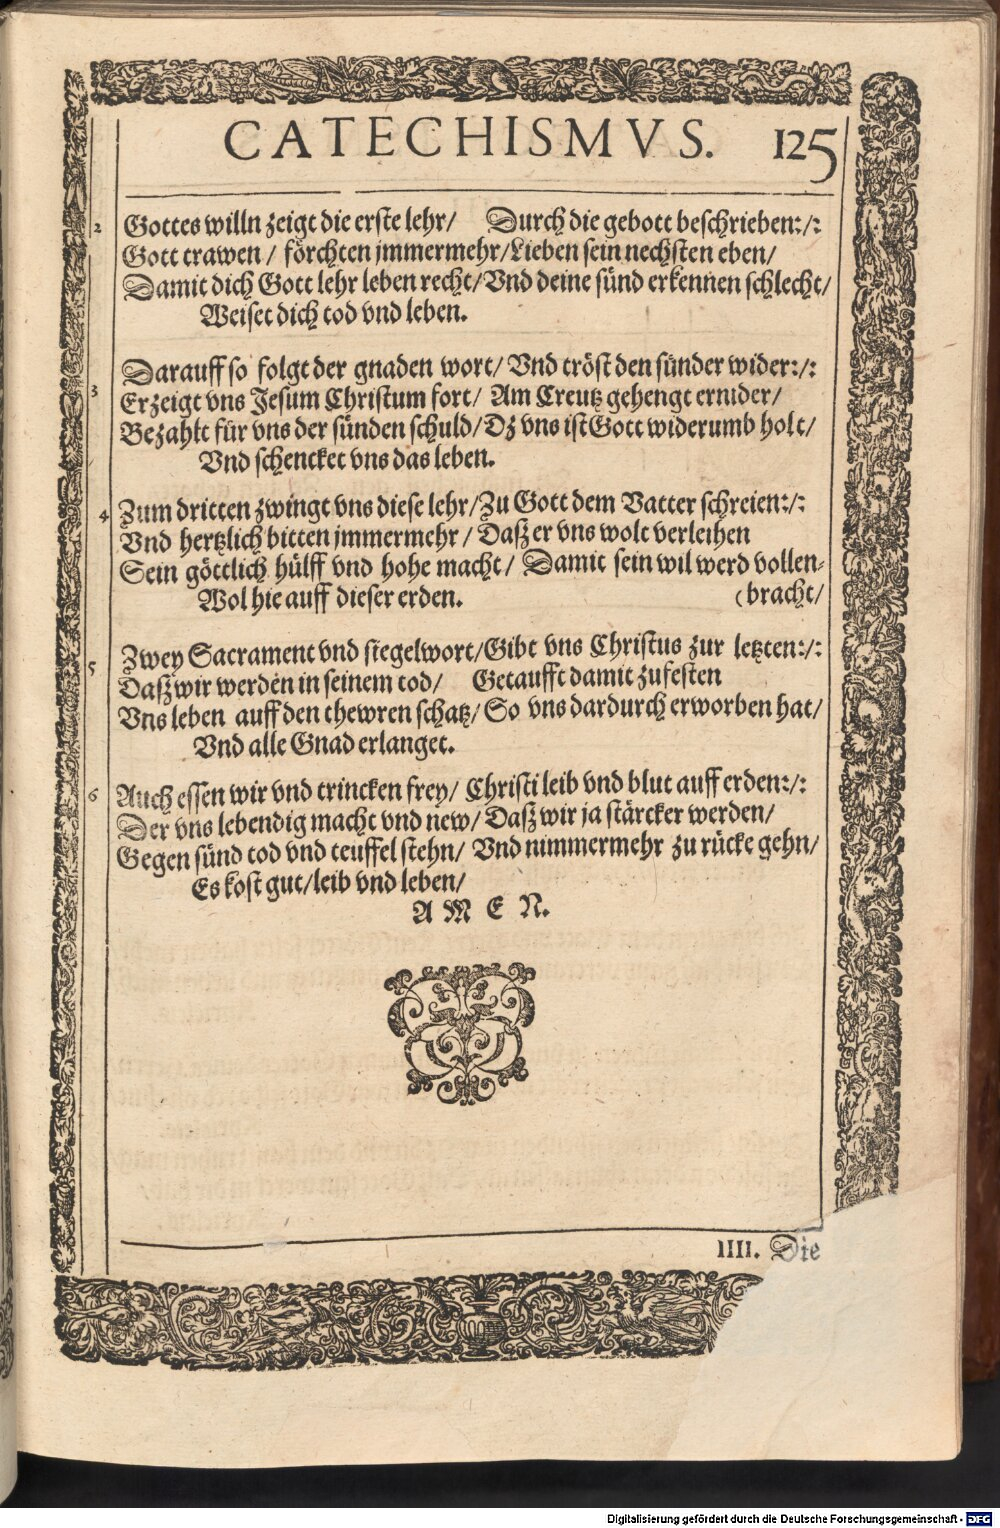 CATECHISMVS. 125
2 Gottes willn zeigt die erste lehr/ Durch die gebott beschrieben:/:
Gott trawen / förchten jmmermehr/Lieben sein nechsten eben/
Damit dich Gott lehr leben recht/Vnd deine sünd erkennen schlecht/
Weiset dich tod vnd leben.
3 Darauff so folgt der gnaden wort/ Vnd tröst den sünder wider:/:
Erzeigt vns Jesum Christum fort/ Am Creutz gehengt ernider/
Bezahlt für vns der sünden schuld/Dz vns ist Gott widerumb holt/
Vnd schencket vns das leben.
4 Zum dritten zwingt vns diese lehr/Zu Gott dem Vatter schreien:/:
Vnd hertzlich bitten jmmermehr / Daß er vns wolt verleihen
Sein göttlich hülff vnd hohe macht/ Damit sein wil werd vollen-
Wol hie auff dieser erden. (bracht/
5 Zwey Sacrament vnd siegelwort/Gibt vns Christus zur letzten:/:
Daß wir werden in seinem tod/ Getaufft damit zufesten
Vns leben auff den thewren schatz/So vns dardurch erworben hat/
Vnd alle Gnad erlanget.
6 Auch essen wir vnd trincken frey/ Christi leib vnd blut auff erden:/:
Der vns lebendig macht vnd new/Daß wir ja stärcker werden/
Gegen sünd tod vnd teuffel stehn/ Vnd nimmermehr zu rücke gehn/
Es kost gut/leib vnd leben/
A M E N.
IIII. Die
Digitalisierung gefördert durch die Deutsche Forschungsgemeinschaft - DFG